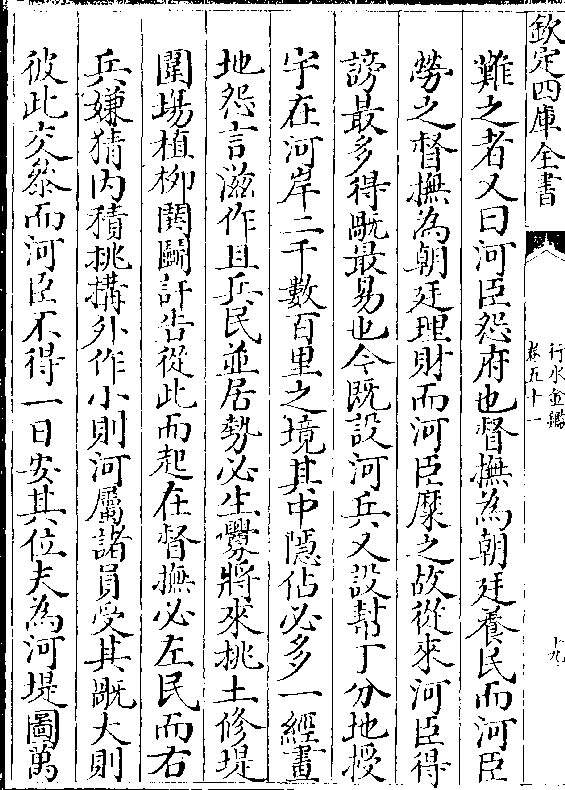 欽定四庫全書
行水金鑑
卷五十一
十九
難之者又曰河臣怨府也督撫為朝廷養民而河臣
勞之督撫為朝廷理財而河臣糜之故從來河臣得
謗最多得毀最易也今既設河兵又設幫丁分地授
宇在河岸二千數百里之境其中隱佔必多一經畫
地怨言滋作且兵民並居勢必生釁將來挑土修堤
圍場植柳鬪鬭訐告從此而起在督撫必左民而右
兵嫌猜内積挑搆外作小則河屬諸員受其毀大則
彼此交叅而河臣不得一日安其位夫為河堤圖萬